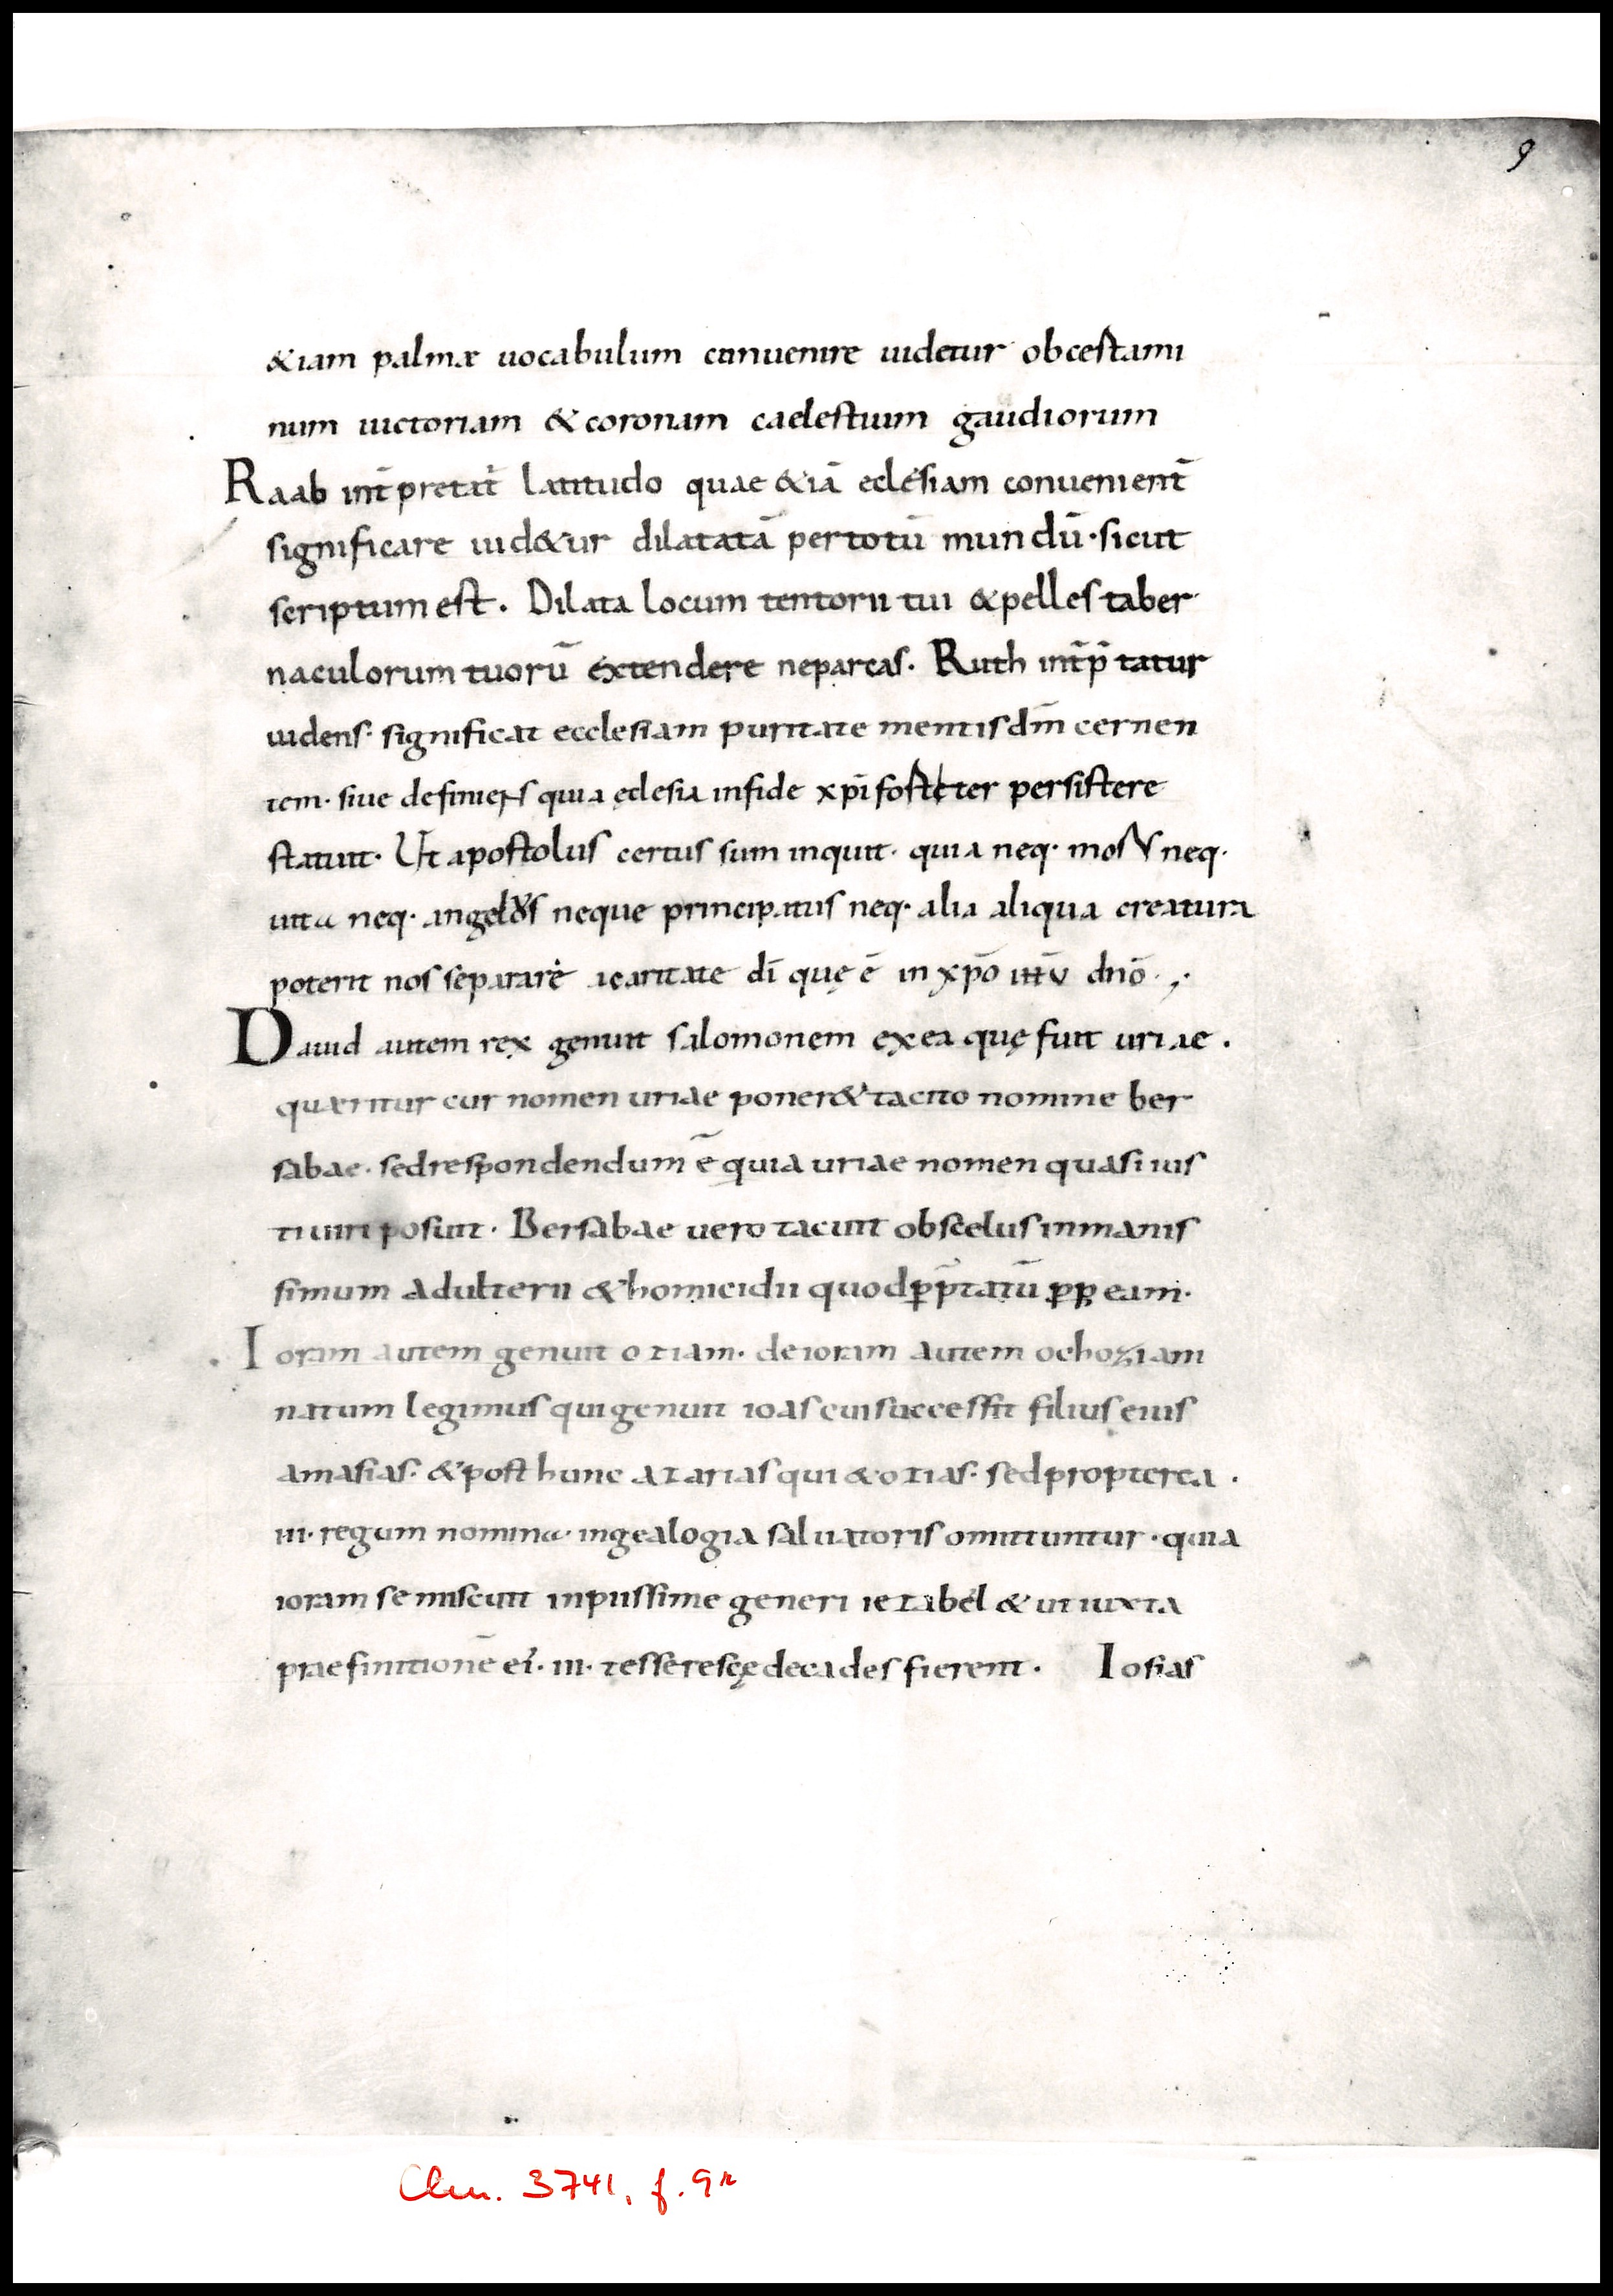 9
&iam palmæ uocabulum conuenire uidetur obcestami
num uictoriam & coronam caelestium gaudiorum
Raab int̄pretat̄ latitudo quae &iā eclesiam conuenient̄
significare uid&ur dilatatā per totū mundū · sicut
scriptum est . Dilata locum tentorii tui & pelles taber
naculorum tuorū extendere neparcas . Ruth int̄p̄tatur
uidens · significat ecclesiam puritate mentis dm̄ cernen
tem · siue definiens quia ęclesia infide xp̄i persistere
statuit · Ut apostolus certus sum inquit · quia neq · neq ·
uita neq · neque principatus neq · alia aliqua creatura
poterit nos separare acaritate dī quę ē in xp̄o dnō
Dauid autem rex genuit salomonem ex ea quę fuit uriae .
quæritur cur nomen uriae poner& tacito nomine ber
sabae · sed respondendum ē quia uriae nomen quasi ius
ti uiri posuit · Bersabae uero tacuit ob scelus inmanis
simum adulterii & homicidii quod eam ·
Ioram autem genuit oziam · de ioram autem ochoziam
natum legimus qui genuit ioas cui successit filius eius
amasias · & post hunc azarias qui & ozias · sed propterea ·
iii · regum nomina · ingealogia saluatoris omittuntur · quia
ioram se miscuit inpiissime generi iezabel & ut iuxta
praefinitionē ei · iii · tesserescędecades fierent · Iosias
Clm. 3741, f. 9r